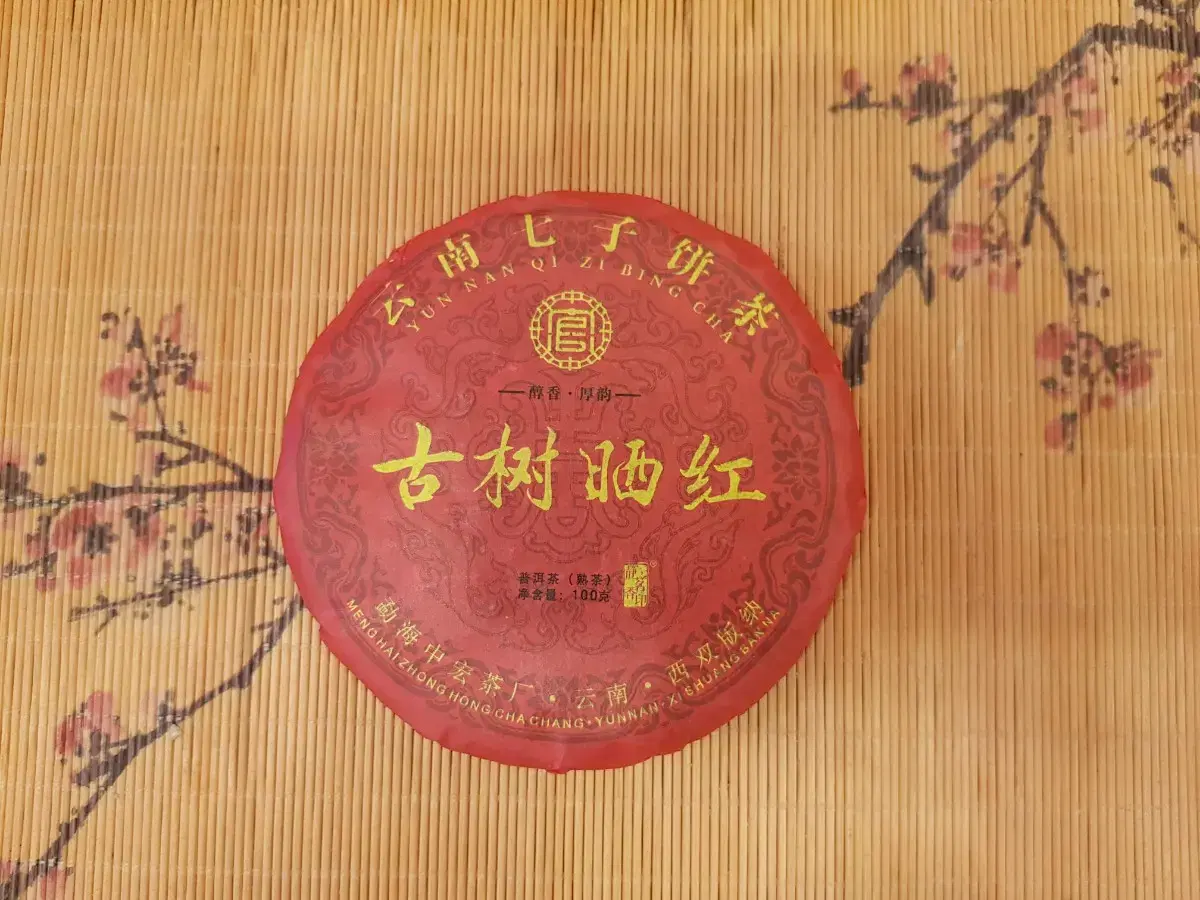 云南七子饼茶
YUN NAN QI ZI BING CHA
宫
醇香·厚韵
古树晒红
普洱茶（熟茶）
净含量：100克
勐海中宏茶厂·云南·西双版纳
MENG HAI ZHONG HONG CHA CHANG·YUNNAN·XI SHUANG BAN NA